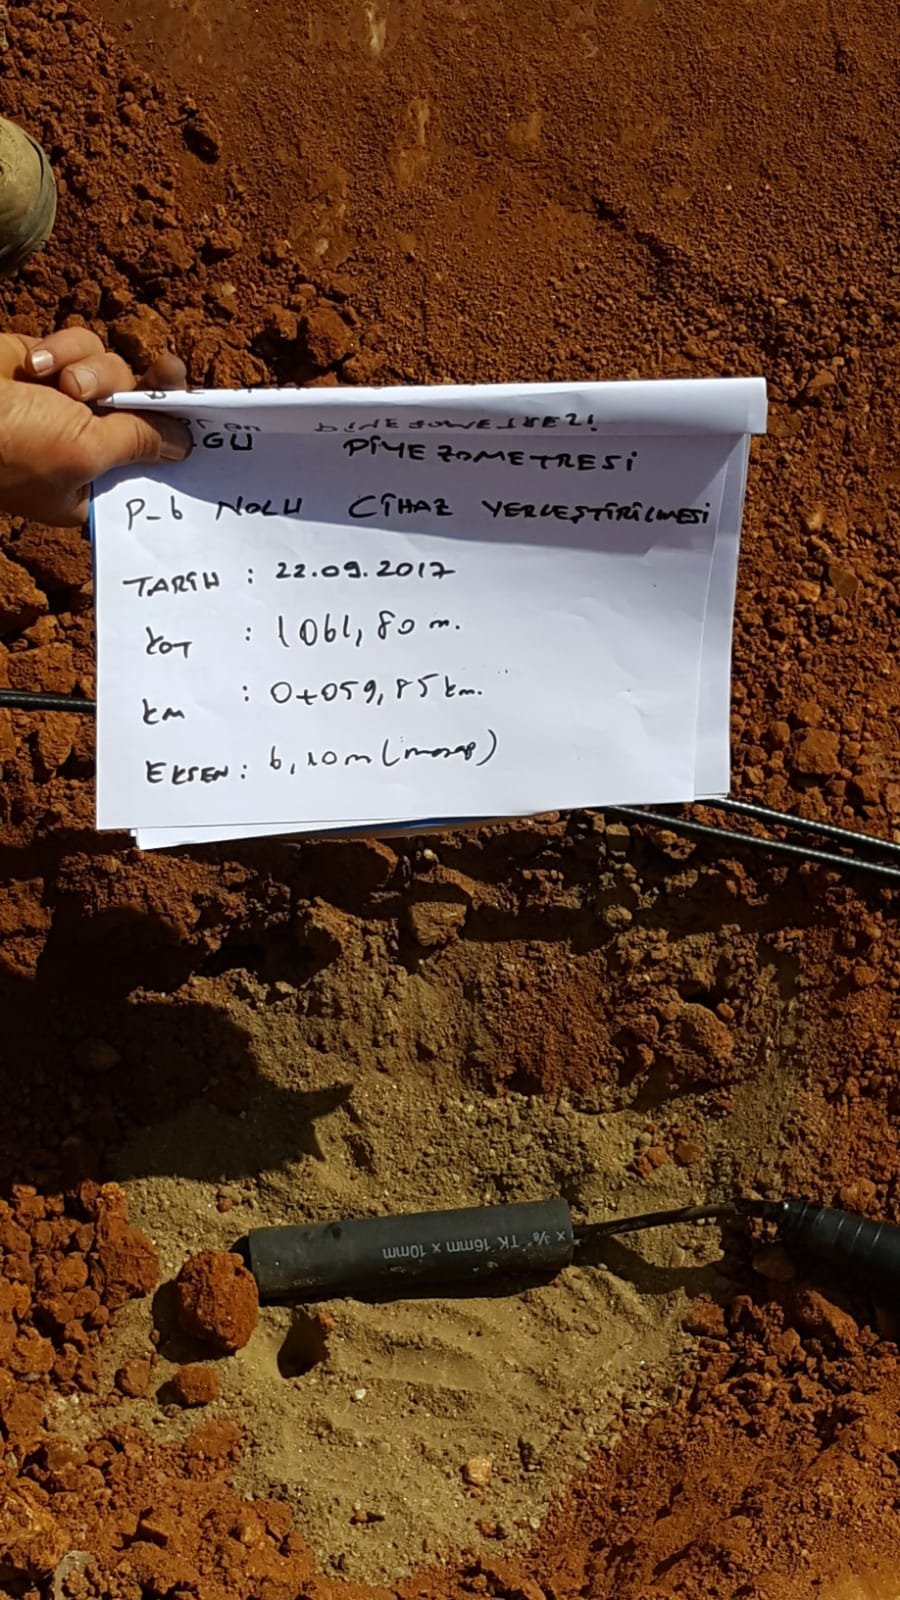 PİYEZOMETRESİ
P-6 NOLU CİHAZ YERLEŞTİRİLMESİ
TARİH : 22.09.2017
KOT : 1061,80 m.
km : 0+059,85 km.
EKSEN : 6,10m (mansap)
x ⅜" TK 16mm x 10mm